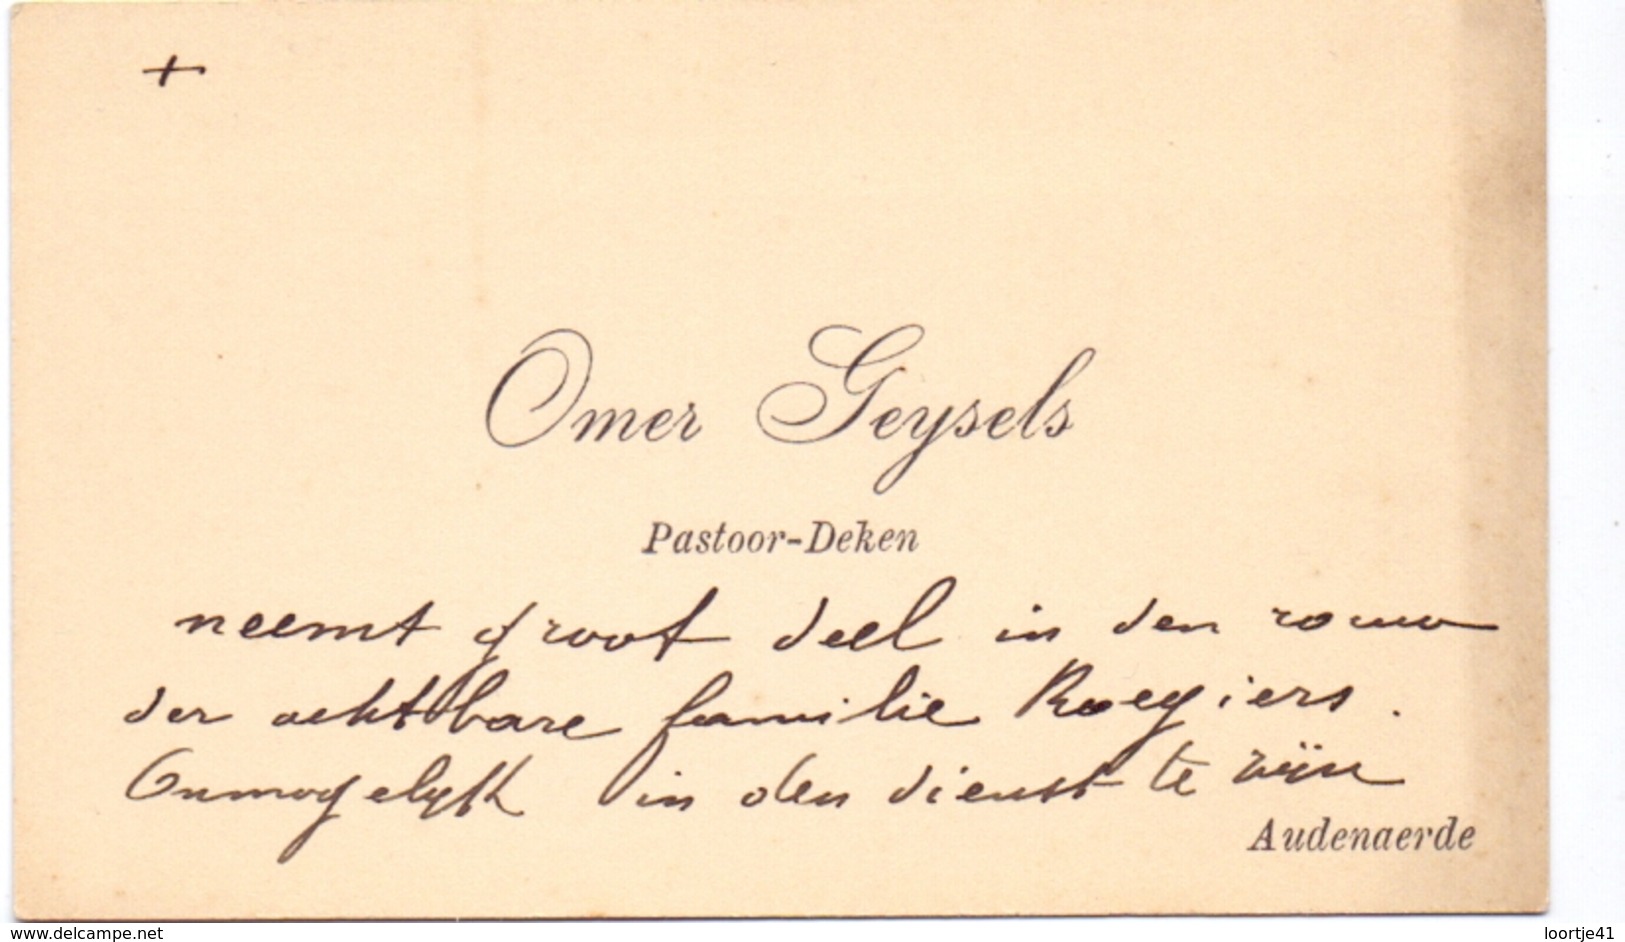 +
Omer Geysels
Pastoor-Deken
neemt groot deel in den rouw
der achtbare familie Roegiers.
Onmogelijk in den dienst te zijn
Audenaerde
www.delcampe.net
loortje41